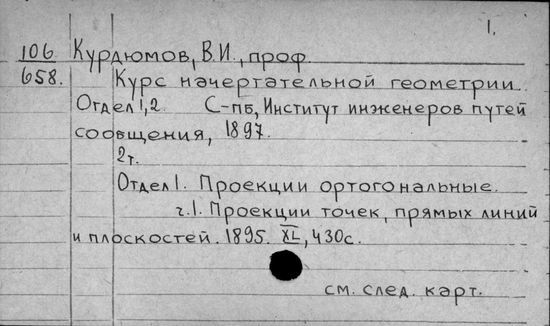 1.
106 Курдюмов, В.И., проф.
658. Курс начертательной геометрии.
Отдел 1,2 С-пб, Институт инженеров путей
сообщения, 1897.
2т.
Отдел 1. Проекции ортогональные.
ч.1. Проекции точек, прямых линий
и плоскостей. 1895. XL, 430с.
см. след. карт.